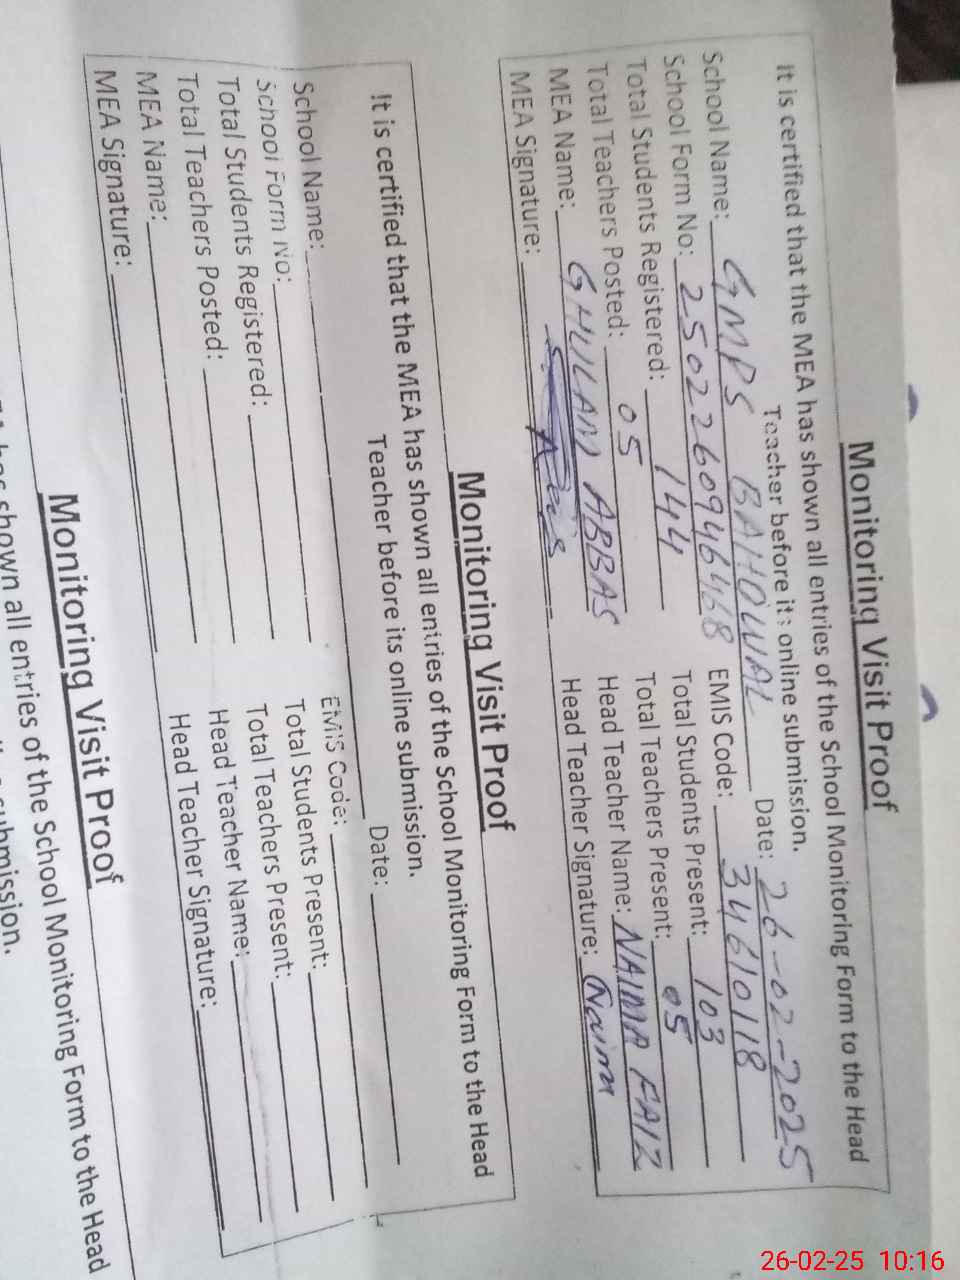 Monitoring Visit Proof
It is certified that the MEA has shown all entries of the School Monitoring Form to the Head
Teacher before its online submission.
School Name: GMPS BAHOWAL Date: 26-02-2025
School Form No: 25022609464468 EMIS Code: 34610118
Total Students Registered: 144 Total Students Present: 103
Total Teachers Posted: 05 Total Teachers Present: 05
MEA Name: GHULAM ABBAS Head Teacher Name: NAIMA FAIZ
MEA Signature: Head Teacher Signature: Naima
Monitoring Visit Proof
It is certified that the MEA has shown all entries of the School Monitoring Form to the Head
Teacher before its online submission.
School Name: Date:
School Form No: EMIS Code:
Total Students Registered: Total Students Present:
Total Teachers Posted: Total Teachers Present:
MEA Name: Head Teacher Name:
MEA Signature: Head Teacher Signature:
Monitoring Visit Proof
has shown all entries of the School Monitoring Form to the Head
submission.
26-02-25 10:16